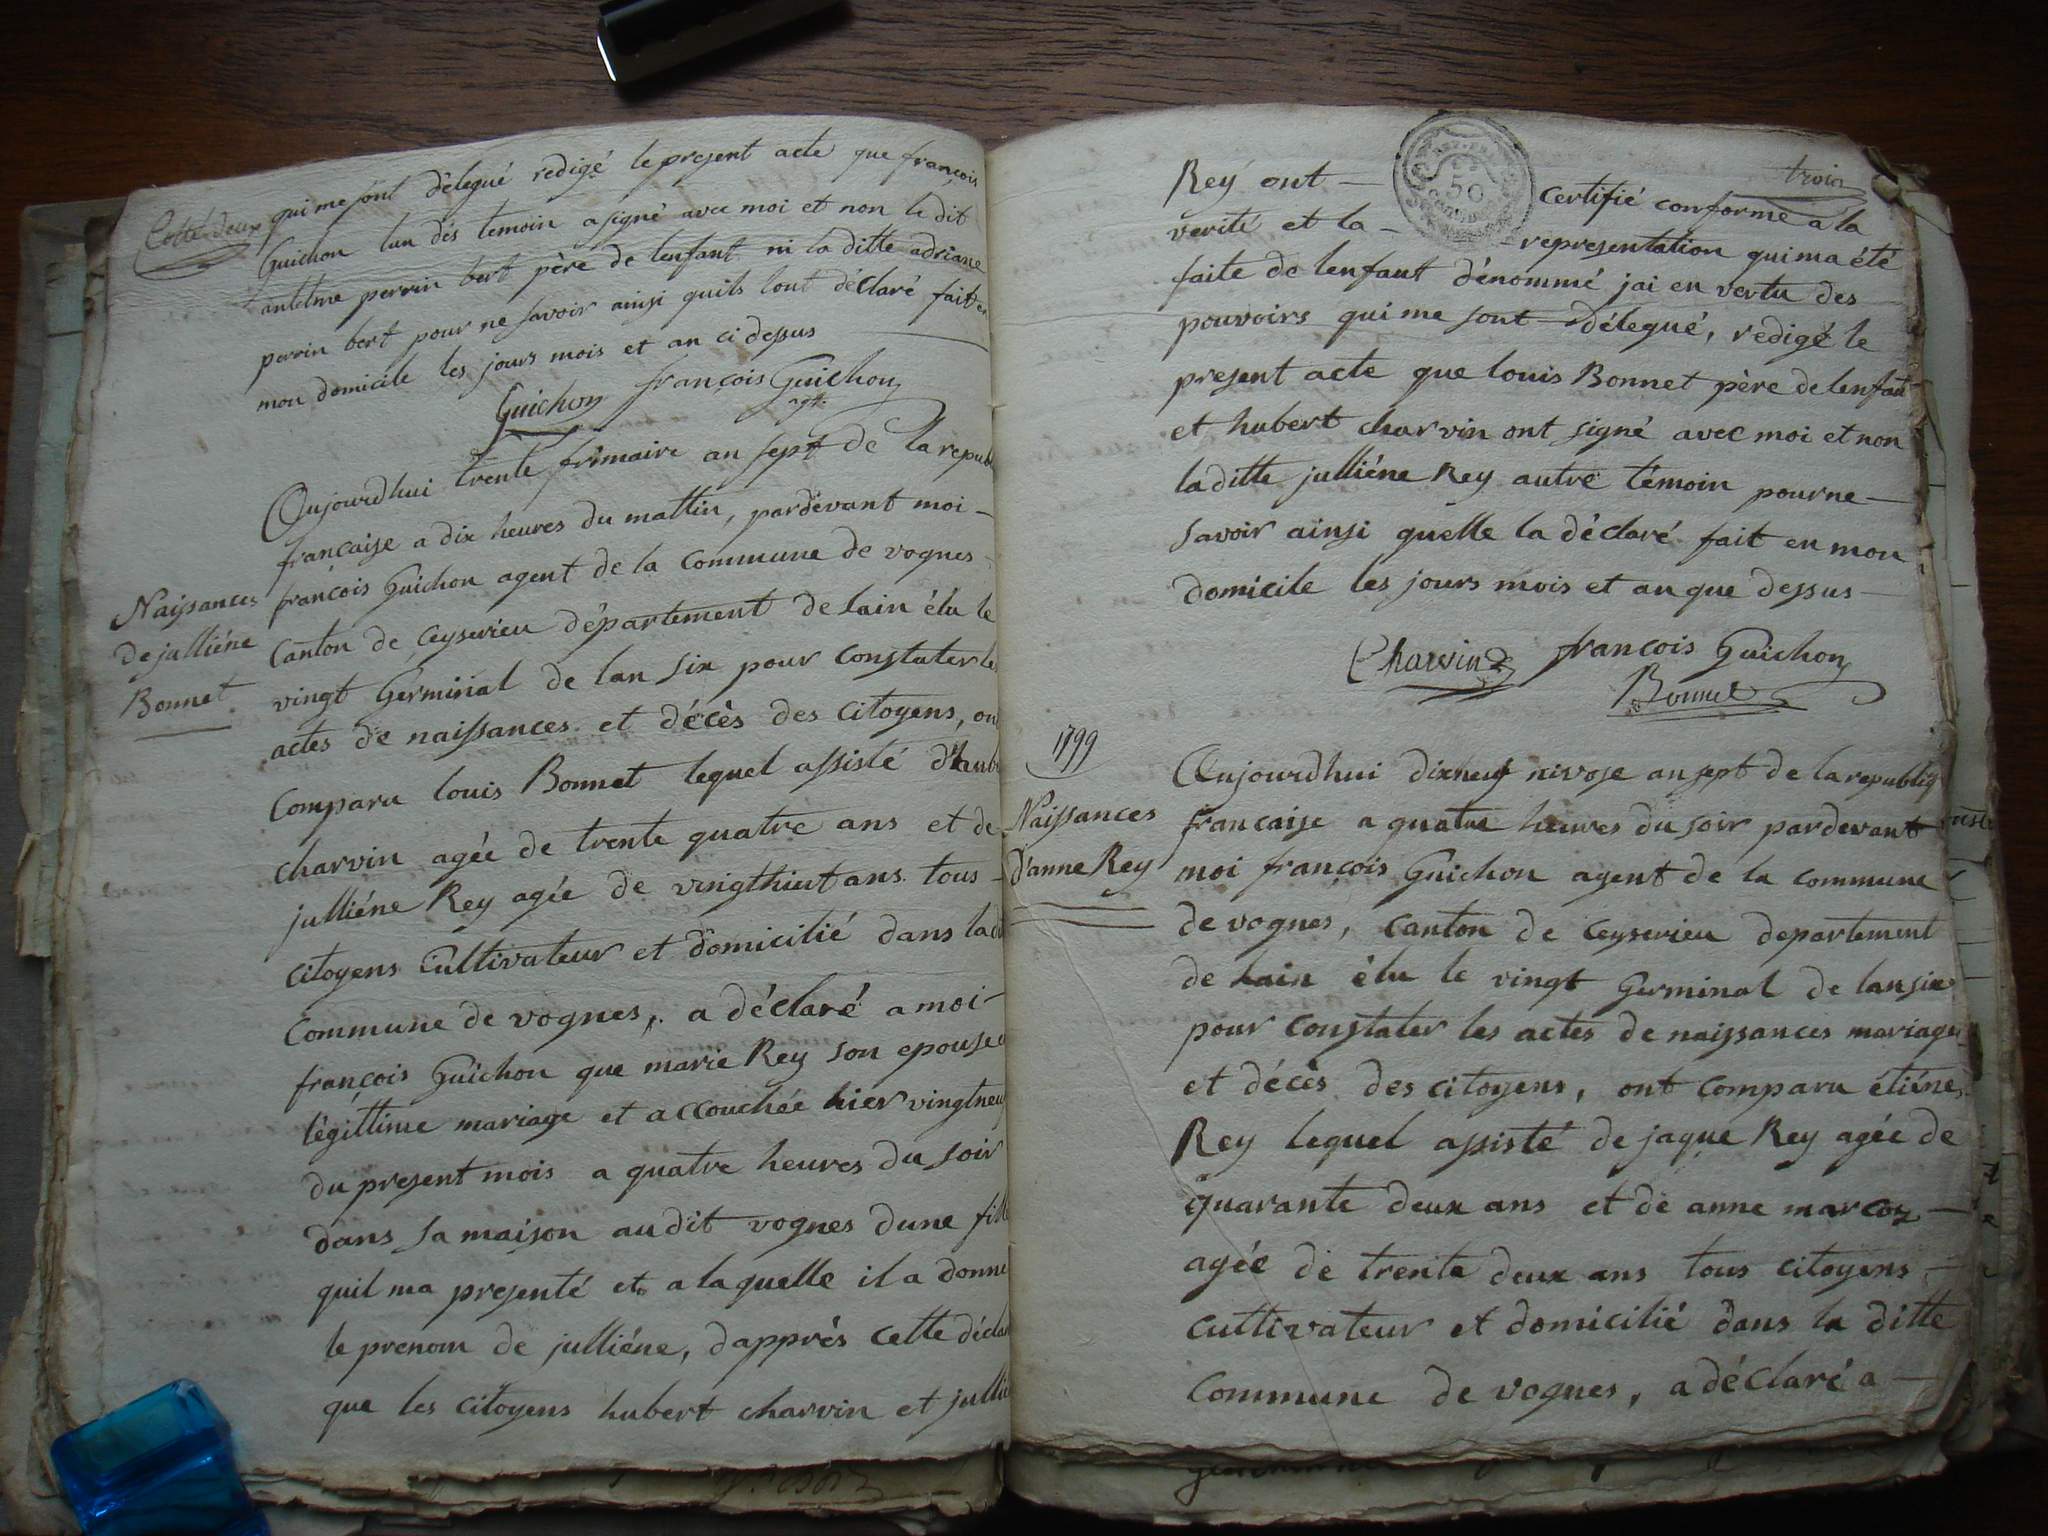 Cotté deux
qui me sont délegué redigé le present acte que françois
Guichon lun dés temoin a signé avec moi et non le dit
antelme perrin bert père de lenfant ni la ditte adriane
perrin bert pour ne savoir ainsi quils lont déclaré fait en
mon domicile les jours mois et an ci dessus
Guichon françois Guichon
agt.
Naissances
de julliéne
Bonnet
Aujourdhui trente frimaire an sept de la republ
francaise a dix heures du mattin, pardevant moi -
françois Guichon agent de la commune de vognes
Canton de Ceyserieu département de lain élu le
vingt Germinal de lan six pour constater les
actes de naissances et décès des citoyens, ont
comparu louis Bonnet lequel assisté d'haub
charvin agée de trente quatre ans et de
julliéne Rey agée de vingthuit ans tous -
citoyens Cultivateur et domicilié dans la dit
Commune de vognes, a déclaré a moi -
françois Guichon que marie Rey son epouse e
légittime mariage et accouchée hier vingtneuf
du present mois a quatre heures du soir
dans sa maison audit vognes dune fille
quil ma presenté et a laquelle il a donné
le prenom de julliéne, dapprés cette déclar
que les citoyens hubert charvin et jullié
troix
REP. FRA.
50
Rey ont — certifié conforme a la
verité et la - representation qui ma été
faite de lenfant dénommé jai en vertu des
pouvoirs qui me sont délegué, redigé le
present acte que louis Bonnet père de lenfant
et hubert charvin ont signé avec moi et non
la ditte julliéne Rey autre témoin pour ne —
savoir ainsi quelle la déclaré fait en mon
domicile les jours mois et an que dessus —
Charvin françois Guichon
Bonnet
1799
Naissances
D'anne Rey
Aujourdhui dixneuf nivose an sept de la republiq
francaise a quatre heures du soir pardevant
moi françois Guichon agent de la commune
de vognes, Canton de Ceyserieu departement
de lain élu le vingt Germinal de lan six
pour constater les actes de naissances mariages
et décès des citoyens, ont comparu étiéne
Rey lequel assisté de jaque Rey agée de
quarante deux ans et de anne marcoz —
agée de trente deux ans tous citoyens —
cultivateur et domicilié dans la ditte
Commune de vognes, a déclaré a —